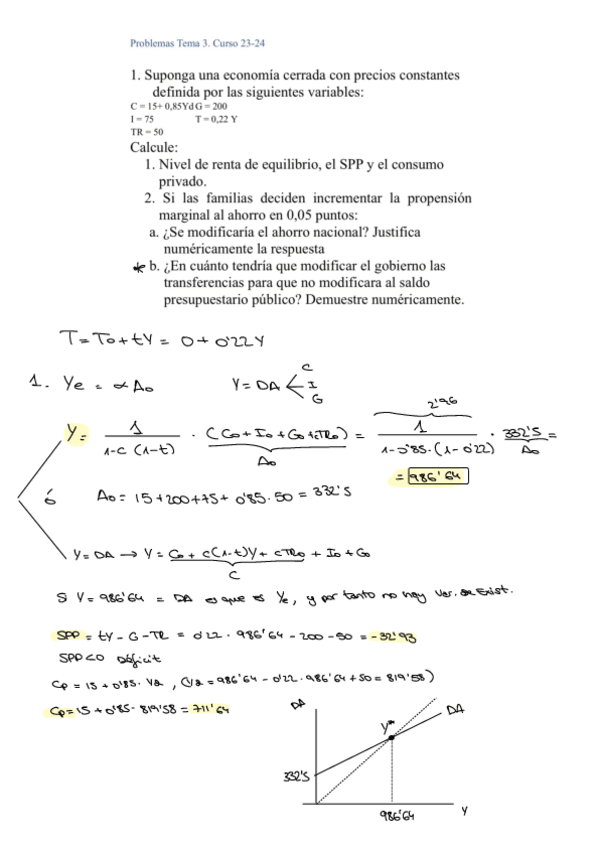 Problemas Tema 3. Curso 23-24
1. Suponga una economía cerrada con precios constantes
definida por las siguientes variables:
C = 15+ 0,85Yd G = 200
I = 75 T = 0,22 Y
TR = 50
Calcule:
1. Nivel de renta de equilibrio, el SPP y el consumo
privado.
2. Si las familias deciden incrementar la propensión
marginal al ahorro en 0,05 puntos:
a. ¿Se modificaría el ahorro nacional? Justifica
numéricamente la respuesta
* b. ¿En cuánto tendría que modificar el gobierno las
transferencias para que no modificara al saldo
presupuestario público? Demuestre numéricamente.
T = To + tY = 0 + 0'22Y
1. Ye = α Ao Y = DA < C I G
2'96
Y = 1 / 1-c (1-t) · (Co + Io + Go + cTRo) = 1 / 1-0'85·(1-0'22) · 332'5 =
Ao Ao
= 986'64
ó Ao = 15+200+75+ 0'85·50 = 332'5
Y = DA → Y = Co + c(1-t)Y + cTRo + Io + Go
C
Si Y = 986'64 = DA es que es Ye, y por tanto no hay Var. de Exist.
SPP = tY - G - TR = 0'22 · 986'64 - 200 - 50 = -32'93
SPP<0 Déficit
Cp = 15 + 0'85· Yd , (Yd = 986'64 - 0'22·986'64 + 50 = 819'58)
Cp = 15 + 0'85· 819'58 = 711'64
DA
Y*
DA
332'5
986'64
Y